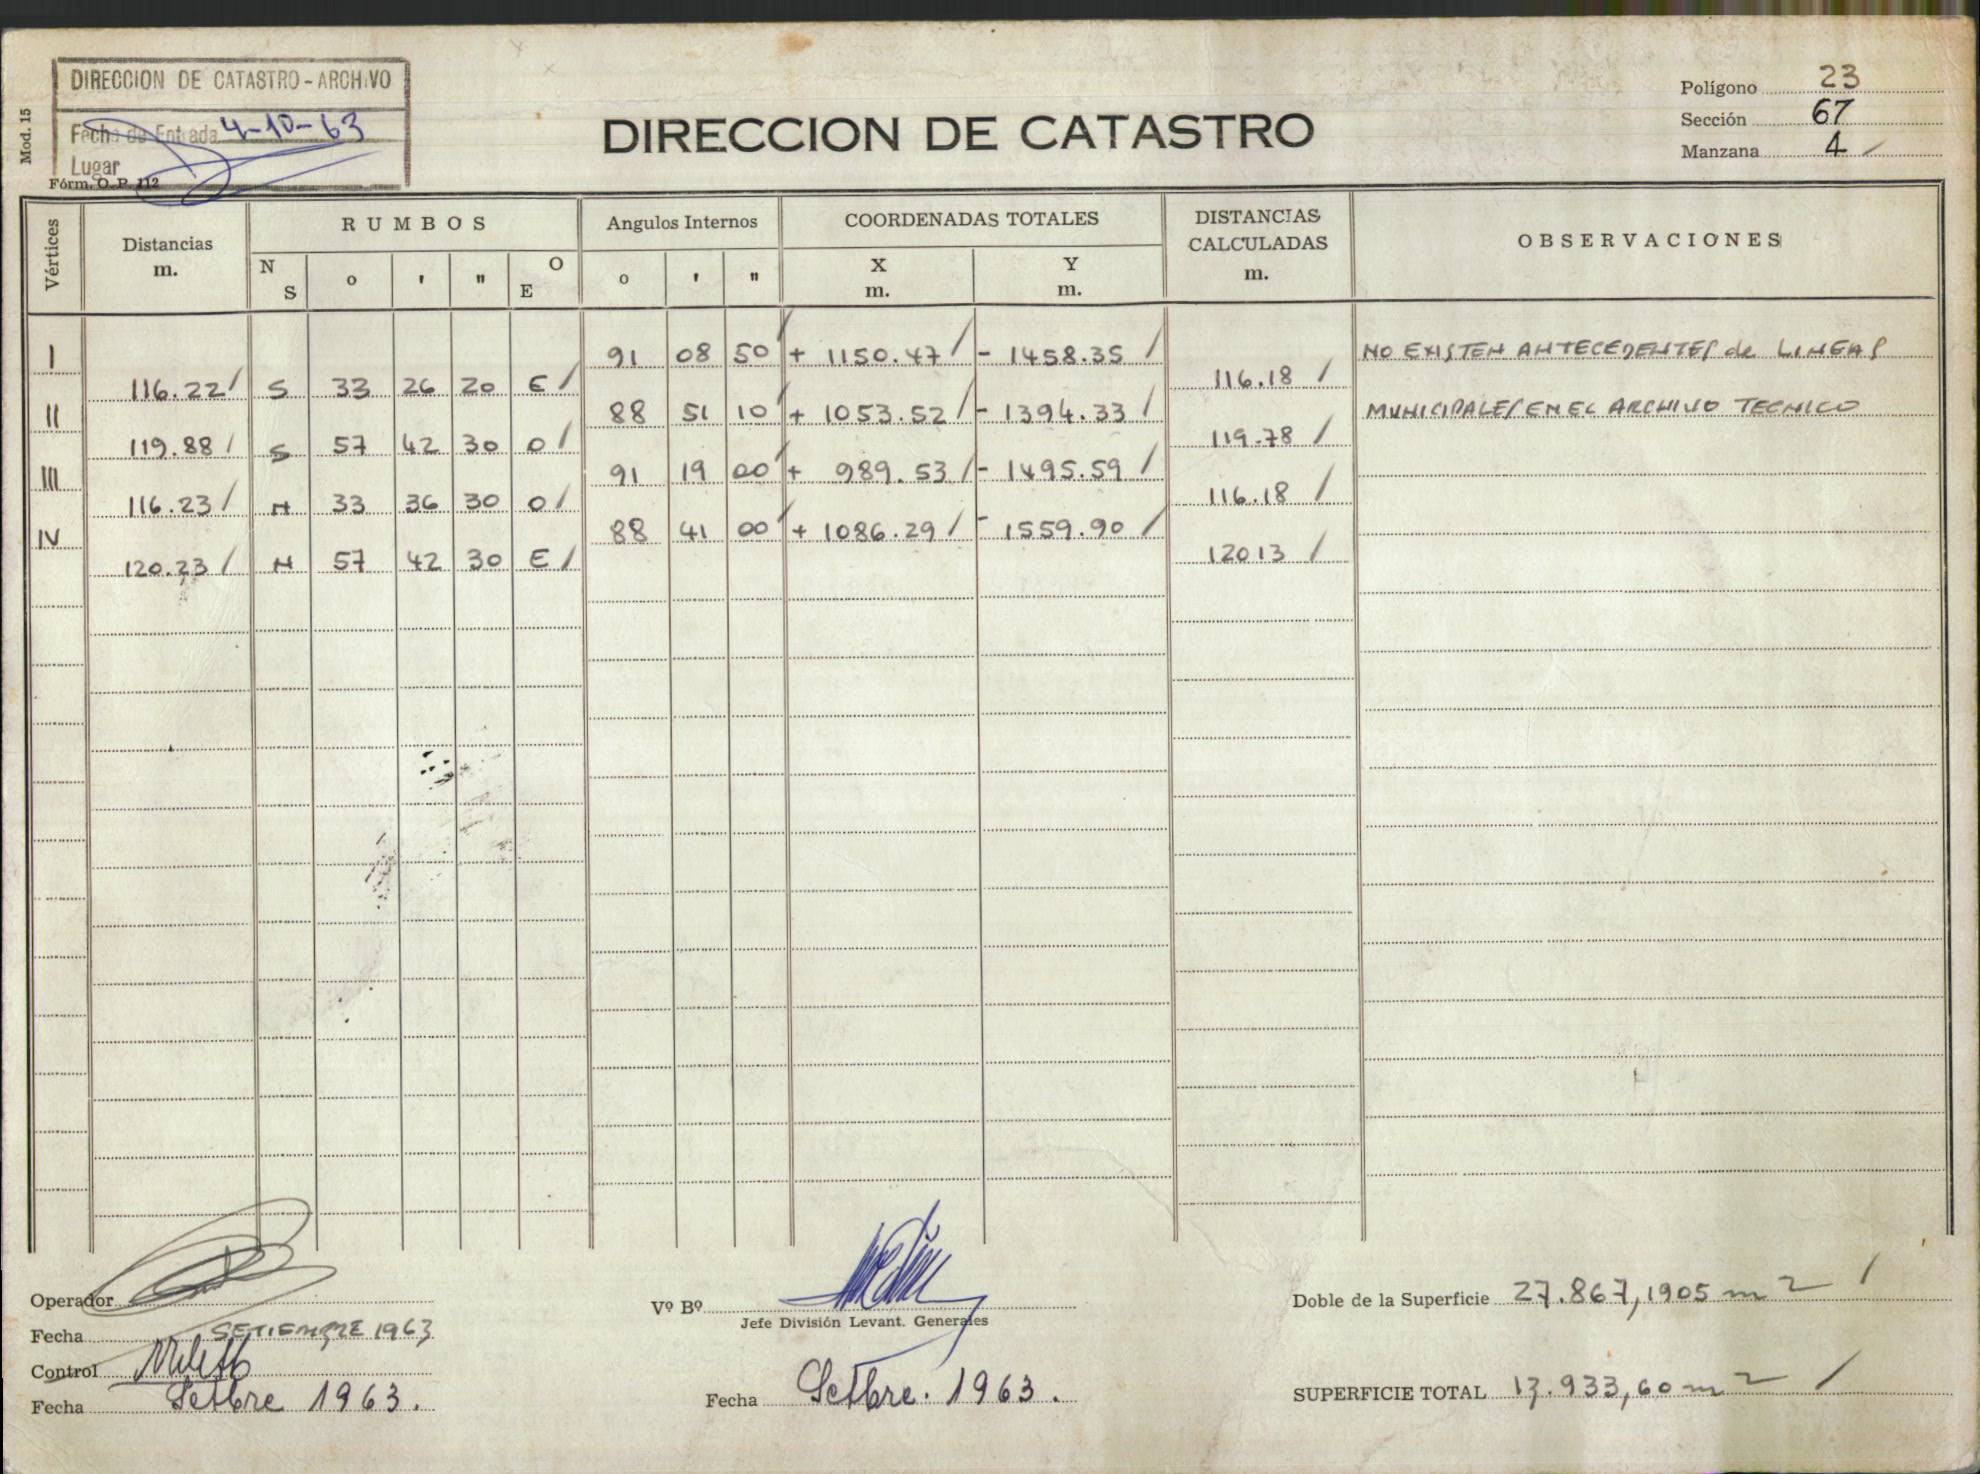 DIRECCION DE CATASTRO - ARCHIVO
Fecha de Entrada 4-10-63
Lugar
Mod. 15
Fórm. O. P. 112
DIRECCION DE CATASTRO
Polígono 23
Sección 67
Manzana 4
Vértices
Distancias
m.
RUMBOS
N
S
o
'
"
O
E
Angulos Internos
o
'
"
COORDENADAS TOTALES
X
m.
Y
m.
DISTANCIAS
CALCULADAS
m.
OBSERVACIONES
I 91 08 50 + 1150.47 - 1458.35 NO EXISTEN ANTECEDENTES de LINEAS
116.22 S 33 26 20 E 116.18
II 88 51 10 + 1053.52 - 1394.33 MUNICIPALES EN EL ARCHIVO TECNICO
119.88 S 57 42 30 O 119.78
III 91 19 00 + 989.53 - 1495.59
116.23 N 33 36 30 O 116.18
IV 88 41 00 + 1086.29 - 1559.90
120.23 N 57 42 30 E 120.13
Operador
Fecha SETIEMBRE 1963
Control
Fecha Setbre 1963.
Vº Bº
Jefe División Levant. Generales
Fecha Setbre. 1963.
Doble de la Superficie 27.867,1905 m2
SUPERFICIE TOTAL 13.933,60 m2